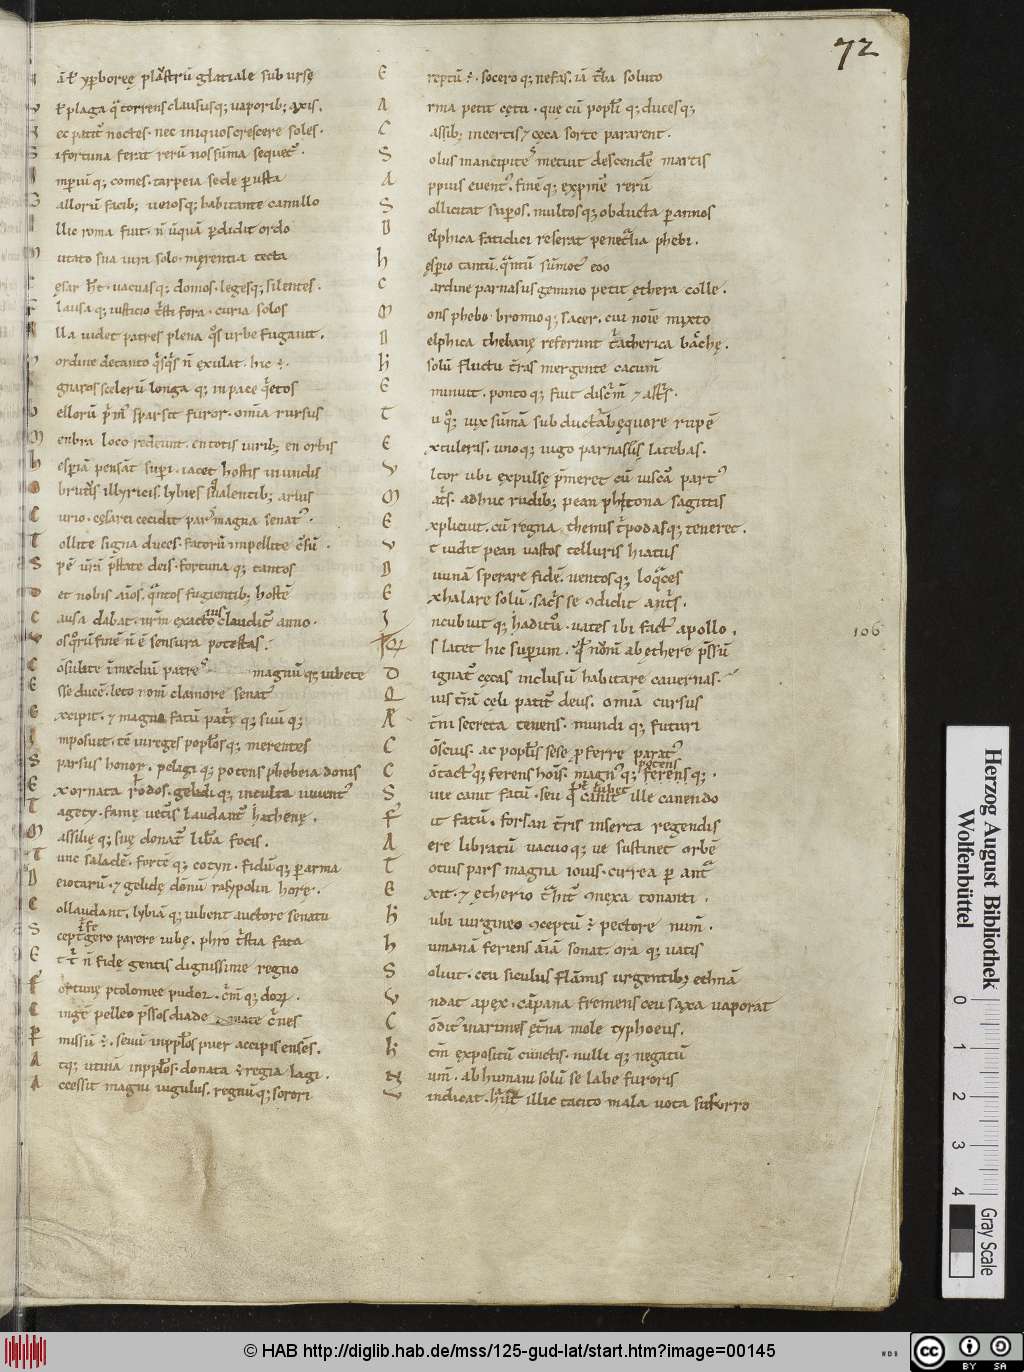 72
Nāt yꝑboreę plaustrū glaciale sub ursę
Vt plaga qͣ torrens claususq; vaporib; axis.
Nec patitͬ noctes. nec iniquos crescere soles.
Si fortuna ferat rerū nos sūma sequetͬ.
Imꝑiūq; comes. tarpeia sede ꝑusta
Gallorū facib; veiosq; habitante camillo
Illic roma fuit. n̄ ūquā ꝑdidit ordo
Mutato sua iura solo. męrentia tecta
Cęsar h̄t. vacuasq; domos. legesq; silentes.
Clausaq; iusticio tristi fora. curia solos
Illa videt patres plena qͦs urbe fugavit.
Ordine de tanto qͥsqͥs n̄ exulat. hic ē.
Ignaros scelerū longa q; in pace qͥetos
Bellorū pͥmͥ sparsit furor. omīa rursus
Menbra loco redeunt. en totis virib; en orbis
Hesperiā pensāt suꝑi. iacet hostis in undis
Obrutͥs illyricis. lybies squalentib; arvis
Curio. cęsarei cecidit pars magna senatͥ.
Tollite signa duces. fatorū impellite c̄sū.
Spē vr̄ā p̄state deis. fortuna q; tantos
Det nobis aīos. qͣntos fugientib; hostē
Causa dabat. nr̄m exacto ius clauditͬ anno.
Vos qͦrū finē n̄ ē sensura potestas.
Cōsulite ī mediū patres magnū q; iubete
Esse ducē. leto nom̄ clamore senatͥ
Excipit. ⁊ magno fatū patͥę q; suū q;
Imposuit. tē in reges poplōsq; merentes
Sparsus honor. pelagi q; potens phebeia donis
Exornata rodos. gelidi q; inculta iuventͥ
Tageti. famę vetͥs laudantͬ athenę.
Massilię q; suę donatͬ libͣa focis.
Tunc saladē. fortē q; cotyn. fidūq; ꝑ arma
Deiotarū. ⁊ gelidę dōnū rasypolin horę.
Collaudant. lybiā q; iubent auctore senatu
Sceptͥgero parere iubę. phro tͥstia fata
Et tͥ n̄ fidę gentis dignissime regno
Fortunę ptolomee pudor. cͥm̄ q; deorͫ.
Cingͤ pelleo p̄ssos diade mate cͥnes
Ꝑmissū ē. sevū in pplōs puer accipis enses.
Atq; utinā in pplōs. donata ē regia lagi.
Accessit magni iugulus. regnūq; sorori
Ereptū ē. socero q; nefas. iā tͬba soluto
Arma petit cętu. que cū popli q; ducesq;
Cassib; incertis ⁊ cęca sorte pararent.
Solus in ancipites metuit descendē martis
Appius eventͥ. finēq; exꝑimͤ rerū
Sollicitat suꝑos. multosq; obducta ꝑ annos
Delphica fatidici reserat penetͣlia phebi.
Hęsꝑio tantū. qͣntū sūmotͥ eoo
Cardine parnasus gemino petit ęthera colle.
Mons phebo. bromioq; sacer. cui noīe mixto
Delphica thebanę referunt tͥatherica bachę.
Hoc solū fluctu tr̄as mergente cacum̄
Eminuit. ponto q; fuit discͥm̄ ⁊ astͥs.
Tu qͦ; vix sūmā sub ducta ab equore rupē
Extuleras. unoq; iugo parnassis latebas.
Vltor ubi expulsę p̄meret cū viscͣa partͥ
Matͥs. adhuc rudib; pean phitona sagittis
Explicuit. cū regna themis tͥpodasq; teneret.
Vt vidit pean vastos telluris hiatus
Divinā sperare fidē. ventosq; loqͣces
Exhalare solū. sacͥs se ꝯdidit antͥs.
Incubuit q; adituͦ. vates ibi factͥ apollo.
106
Qͥs latet hic suꝑum. qͦd numē ab ęthere p̄ssū
Dignatͬ cęcas inclusū habitare cavernas.
Qͥis tr̄ā cęli patitͬ deus. omīa cursus
Ęt̄ni secreta tenens. mundi q; futuri
Cōscius. ac poplīs sese ꝓferre paratͥ
Contactͥ q; ferens hoīs. magnͥ q; potens ferensq;.
Sive canit fatū. seu qͦd iubet ille canendo
Fit fatū. forsan tr̄is inserta regendis
Aere libratū vacuo q; ue sustinet orbē
Totius pars magna iovis. cirrea ꝑ antͣ
Exit. ⁊ ętherio tͣhitͬ ꝯnexa tonanti.
Hͨ ubi virgineo ꝯceptū ē pectore num̄.
Humanā feriens aīā sonat. ora q; vatis
Soluit. ceu siculus flāmis urgentib; ethnā
Vndat apex. cāpana fremens ceu saxa vaporat
Cōditͥ inarimes ęt̄na mole typhoeus.
Hͨ tm̄ expositū cunctis. nulli q; negatū
Num̄. ab humani solū se labe furoris
Vindicat. haut illic tacito mala vota susurro
Herzog August Bibliothek
Wolfenbüttel
0 1 2 3 4
Gray Scale
© HAB http://diglib.hab.de/mss/125-gud-lat/start.htm?image=00145
WDB
cc BY SA